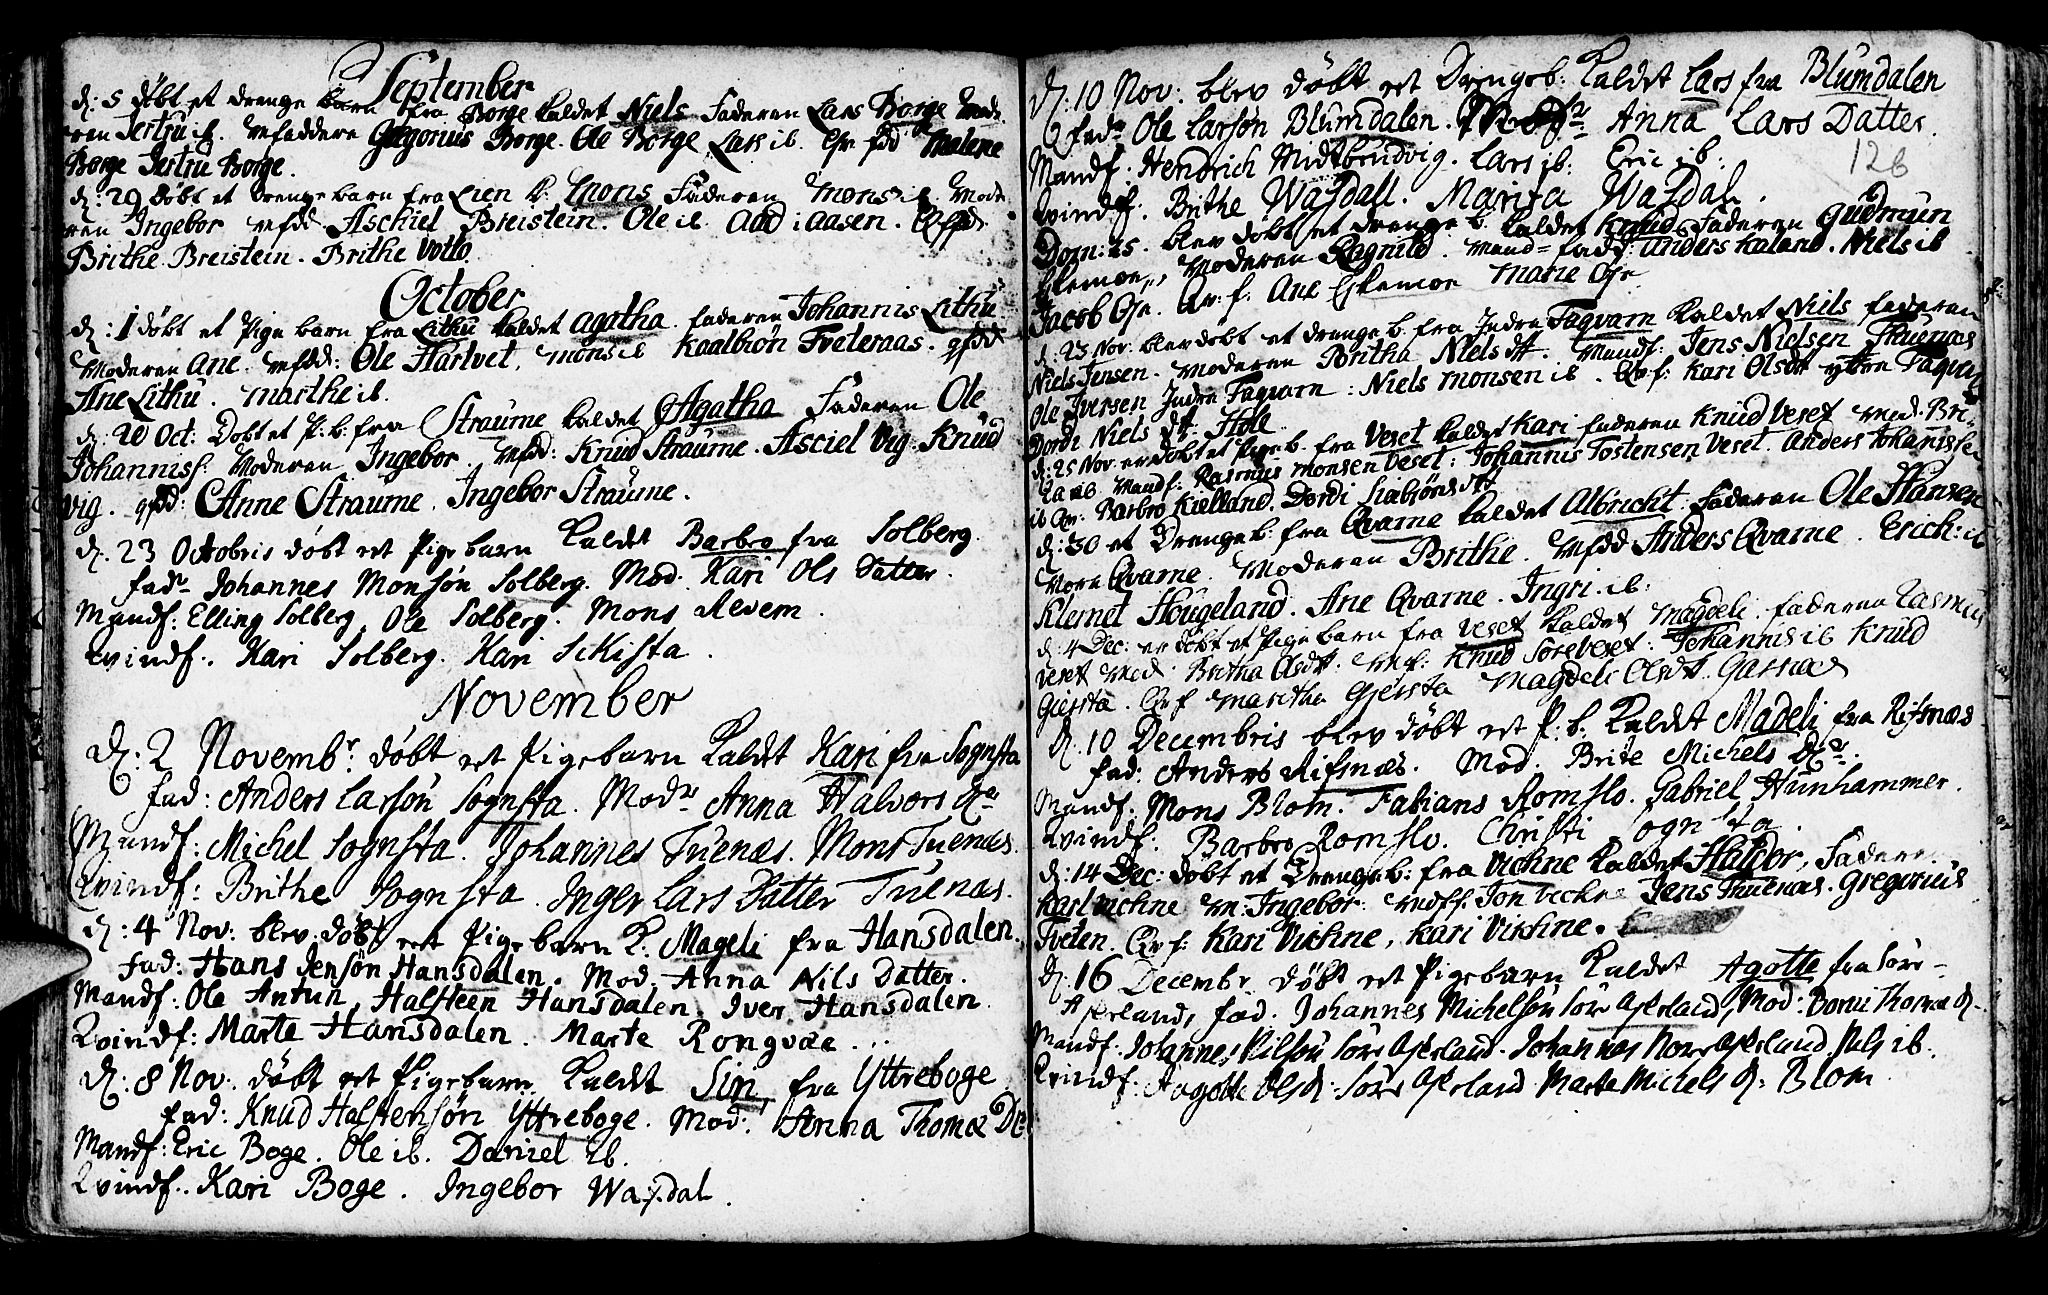 September
d: 5 døbt et drenge barn fra Borge kaldet Niels Faderen Lars Borge Mode-
ren Jertru ib. Mfaddere Gregorius Borge. Ole Borge Lars ib. Qv fdd Malene
Borge Jertru Borge.
d: 29 døbt et drenge barn fra Lien k. Mons Faderen Mons ib Mode
ren Ingebor Mfdd Aschiel Breistein. Ole ib. Aad i aasen. Qfdd
Brithe Breistein. Brithe Votlo
October
d: 1 døbt et Pige barn fra Lithu kaldet agatha faderen Johannis Lithu
Moderen Ane. Mfdd: Ole Hartvet, Mons ib Kaalbiön Tveteraas. qfdd
Ane Lithu. Marthe ib.
d: 20 Oct: Døbt et P: b: fra Straume kaldet Agatha Faderen Ole
Johanniss: Moderen Ingebor. Mfdd: Knud Straume. Asciel Vig. Knud
Vig. qfdd: Anne Straume. Ingebor Straume.
d. 23 Octobris døbt eet Pige barn kaldt Barbro fra Solberg.
fadr Johannes Monsøn Solberg. Mod. Kari Ols Datter.
Mandf: Elling Solberg. Ole Solberg. Mons Revem.
Qvindf:. Kari Solberg. Kari Skista.
November
d: 2 Novembr: døbt eet Pigebarn kaldt Kari fra Sognsta
fad: Anders Larsøn Sognsta. Modr Anna Halvors Dr
Mandf: Michel Sognsta. Johannes Tuenæs. Mons Tuenæs.
Qvindf: Brithe Sognsta. Inger Lars Datter Tuenæs.
d: 4 Nov: blev døbt eet Pigebarn k: Mageli fra Hansdalen.
fad: Hans Jensøn Hansdalen. Mod Anna Nils Datter.
Mandf: Ole Antun, Halsteen Hansdalen, Iver Hansdalen.
Qvindf: Marte Hansdalen. Marte Rongvæe...
d: 8 Nov. døbt eet Pigebarn kaldt Siri, fra Yttreboge
fad: Knud Halstensøn Yttreboge. Mod: Anna Thomæ Dr
Mandf: Eric Boge. Ole ib. Daniel ib.
Qvindf:. Kari Boge. Ingebor Wasdal.
d. 10 Nov: blev døbt eet Drengeb: kaldet Lars fra Blumdalen
fadr Ole Larsøn Blumdalen. Anna Lars Datter.
126
Mandf. Hendrich Midtbrudvig. Lars ib: Eric ib:
Qvindf. Brithe Wasdall. Marita Wasdal.
Dom: 25. blev døbt et drenge b. kaldet Knud, Faderen Gudmun
Eskemoe,, Moderen Ragnild. Mand= fadd: anders Kaland. Niels ib
Jacob Øe. Qv: f: Ane Eskemoe Marie Øe
d: 23 Nov: blev døbt et drenge b. fra Indre Faqvarn kaldet Niels faderen
Niels Jensen. Moderen Britha Niels dt. Mandf: Jens Nielsen Thuenæs
Ole Iversen Indre Faqvarn: Niels Monsen ib. Qvf: Kari Olsdt yttre Faqvarn
Dordi Niels dt. Hole
d: 25 Nov er døbt et Pige b. fra Veset kaldet Kari faderen Knud Veset Mod. Bri-
ta ib Mandf: Rasmus Monsen Veset: Johannis Tostensen Veset. Anders Johannissen
ib Qv. Barbro Kielland. Dordi Siabiörnsdt
d: 30 et Drengeb. fra Qvarne kaldet Albricht. Faderen Ole Hansen
Qvarne. Moderen Brithe. Mfdd Anders Qvarne. Erich: ib
Klemet Hougeland. Ane Qvarne. Ingri. ib.
d: 4 Dec: er døbt et Pige barn fra Veset kaldet Magdeli. faderen Rasmus
Veset Mod Britha Olsdt. M.f: Knud Søreveset. Johannis ib Knud
Giersta. Qvf Maritha Giersta Magdeli Olsdt Garnæs
d. 10 Decembris blev døbt eet P: b. kaldt Madeli fra Risnæs
fad: Anders Risnæs. Mod. Brite Michels Dr.
Mandf. Mons Blom. Fabians Romslo. Gabriel Hunhammer.
Qvindf. Barbro Romslo. Christi Sognsta
d: 14 Dec: døbt et Drengeb: fra Vichne kaldet Haldor, Fadere
Karl Vichne M: Ingebor. Mdff. Jon Vichne Jens Thuenæs. Gregorius
Tveten. Qvf: Kari Vichne, Kari Vichne.
d. 16 Decembr. døbt eet Pigebarn kaldet Agotte fra Søre-
Aserland, fad. Johannes Michelsøn Søre Aserland, Mod: Dorte Thomæ D.
Mandf. Johannes Nilsøn Søre Aserland. Johannes Nore Aserland. Nils ib.
Qvindf. Aagotte Ols D. Søre Aserland Marte Michels D: Blom